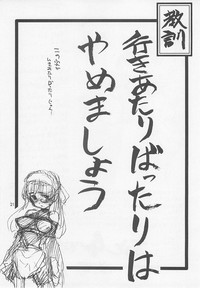 教訓
行きあたりばったりは
やめましょう
21